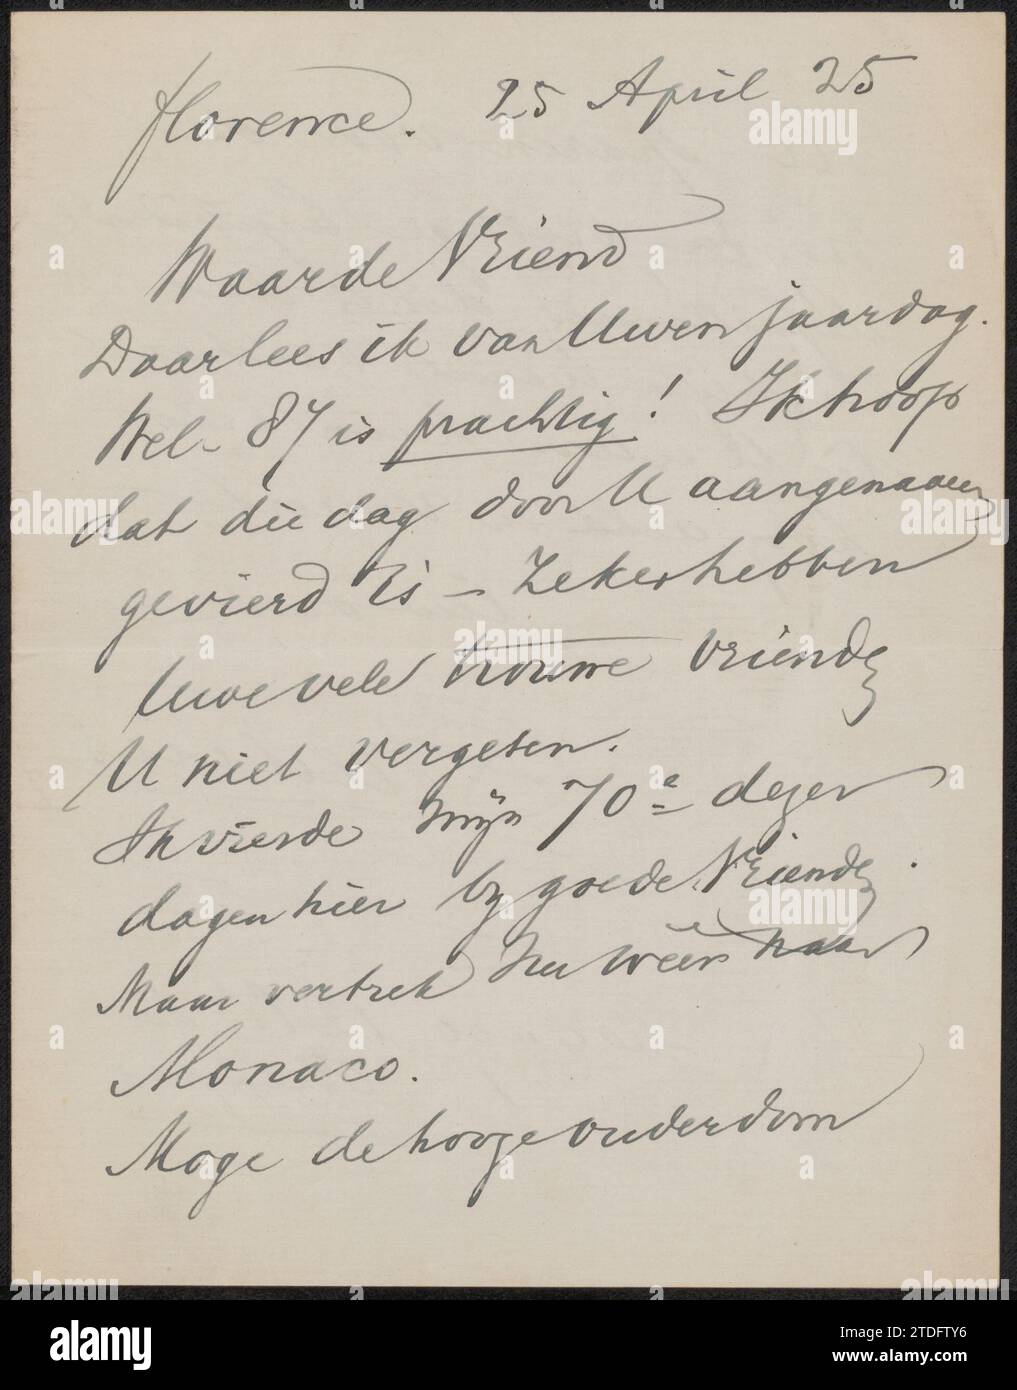 Florence. 25 April 25
Waarde Vriend
Daar lees ik van Uwen jaardag.
Wel- 87 is prachtig! Ik hoop
dat die dag door U aangenaam
gevierd is - Zeker hebben
Uwe vele trouwe vrienden
U niet vergeten.
Ik vierde mijn 70e dezer
dagen hier by goede Vrienden.
Maar vertrek nu weer naar
Monaco.
Moge de hooge ouderdom
alamy
Image ID: 2TDFTY6
www.alamy.com